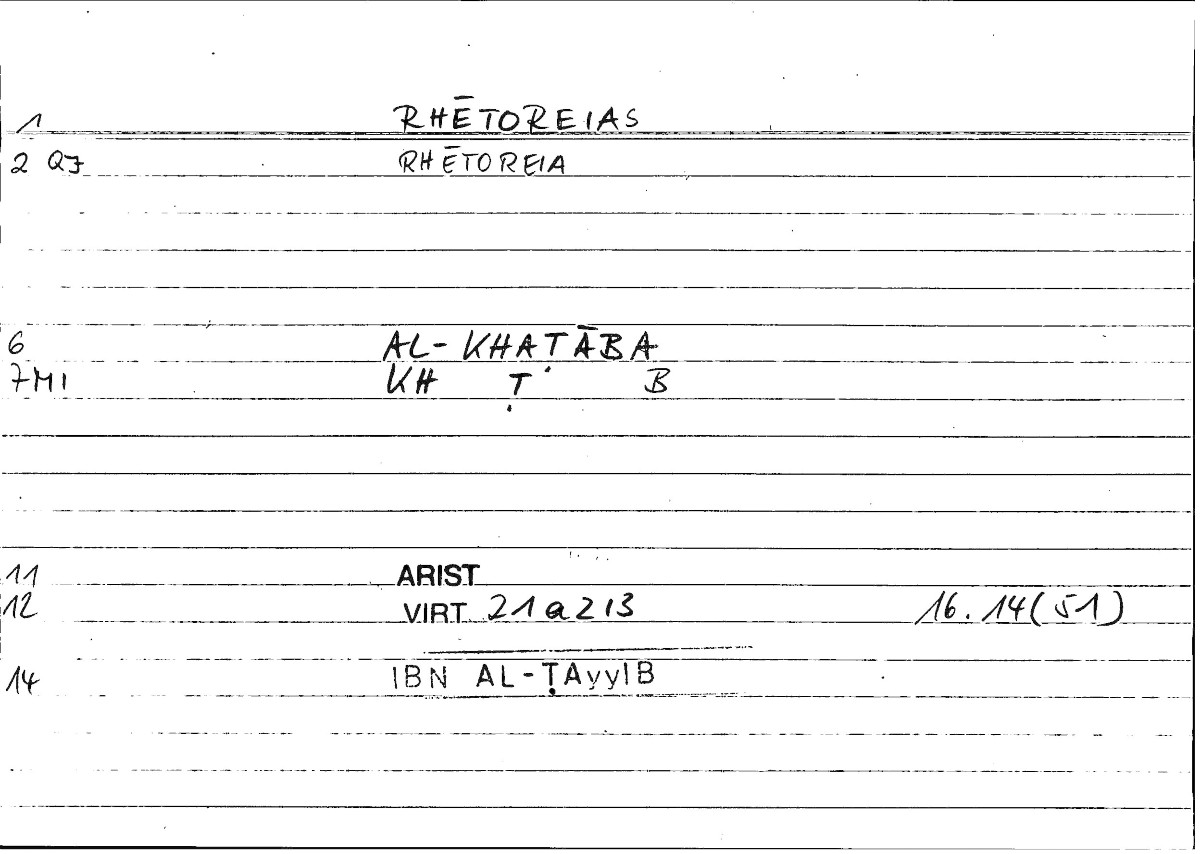 1 RHĒTOREIAS
2 QJ RHĒTOREIA
6 AL-KHAṬĀBA
7MI KH Ṭ B
11 ARIST
12 VIRT 21a213 16.14(51)
14 IBN AL-ṬAyyIB